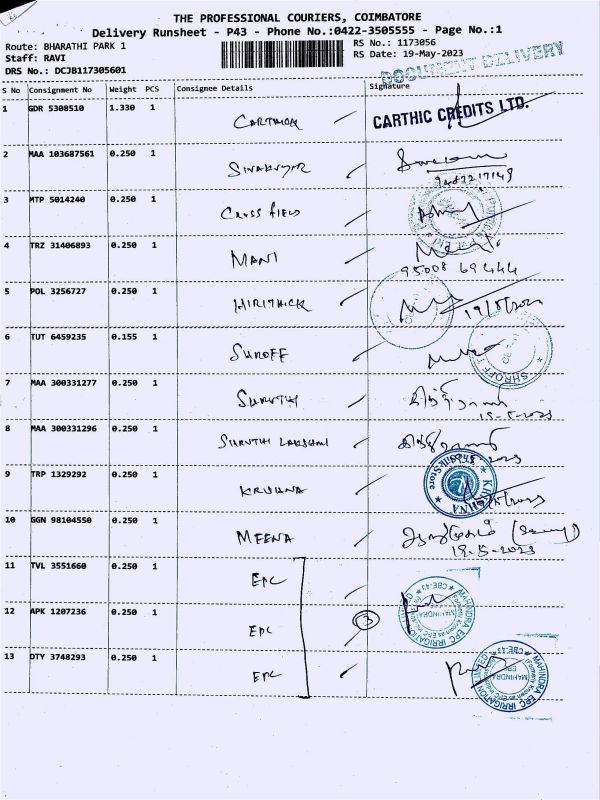 THE PROFESSIONAL COURIERS, COIMBATORE
Delivery Runsheet - P43 - Phone No.:0422-3505555 - Page No.:1
Route: BHARATHI PARK 1
RS No.: 1173056
Staff: RAVI
RS Date: 19-May-2023
DRS No.: DCJB117305601
DOCUMENT DELIVERY
S No Consignment No Weight PCS Consignee Details Signature
1 GDR 5308510 1.330 1 CARTHICK CARTHIC CREDITS LTD.
2 MAA 103687561 0.250 1
3 MTP 5014240 0.250 1 CROSS FIELD
4 TRZ 31406893 0.250 1 MANI
95008 69444
5 POL 3256727 0.250 1 HIRITHICK 19/5/2023
6 TUT 6459235 0.155 1 SHROFF SHROFF
7 MAA 300331277 0.250 1 SHRUTHI
19-5-2023
8 MAA 300331296 0.250 1 SHRUTHI LAKSHMI
9 TRP 1329292 0.250 1 KRISHNA KRISHNA
10 GGN 98104550 0.250 1 MEENA
19-5-2023
11 TVL 3551660 0.250 1 EPC
12 APK 1207236 0.250 1 EPC 3 MAHINDRA EPC IRRIGATION LIMITED CBE-43
13 DTY 3748293 0.250 1 EPC MAHINDRA EPC IRRIGATION LIMITED CBE-43